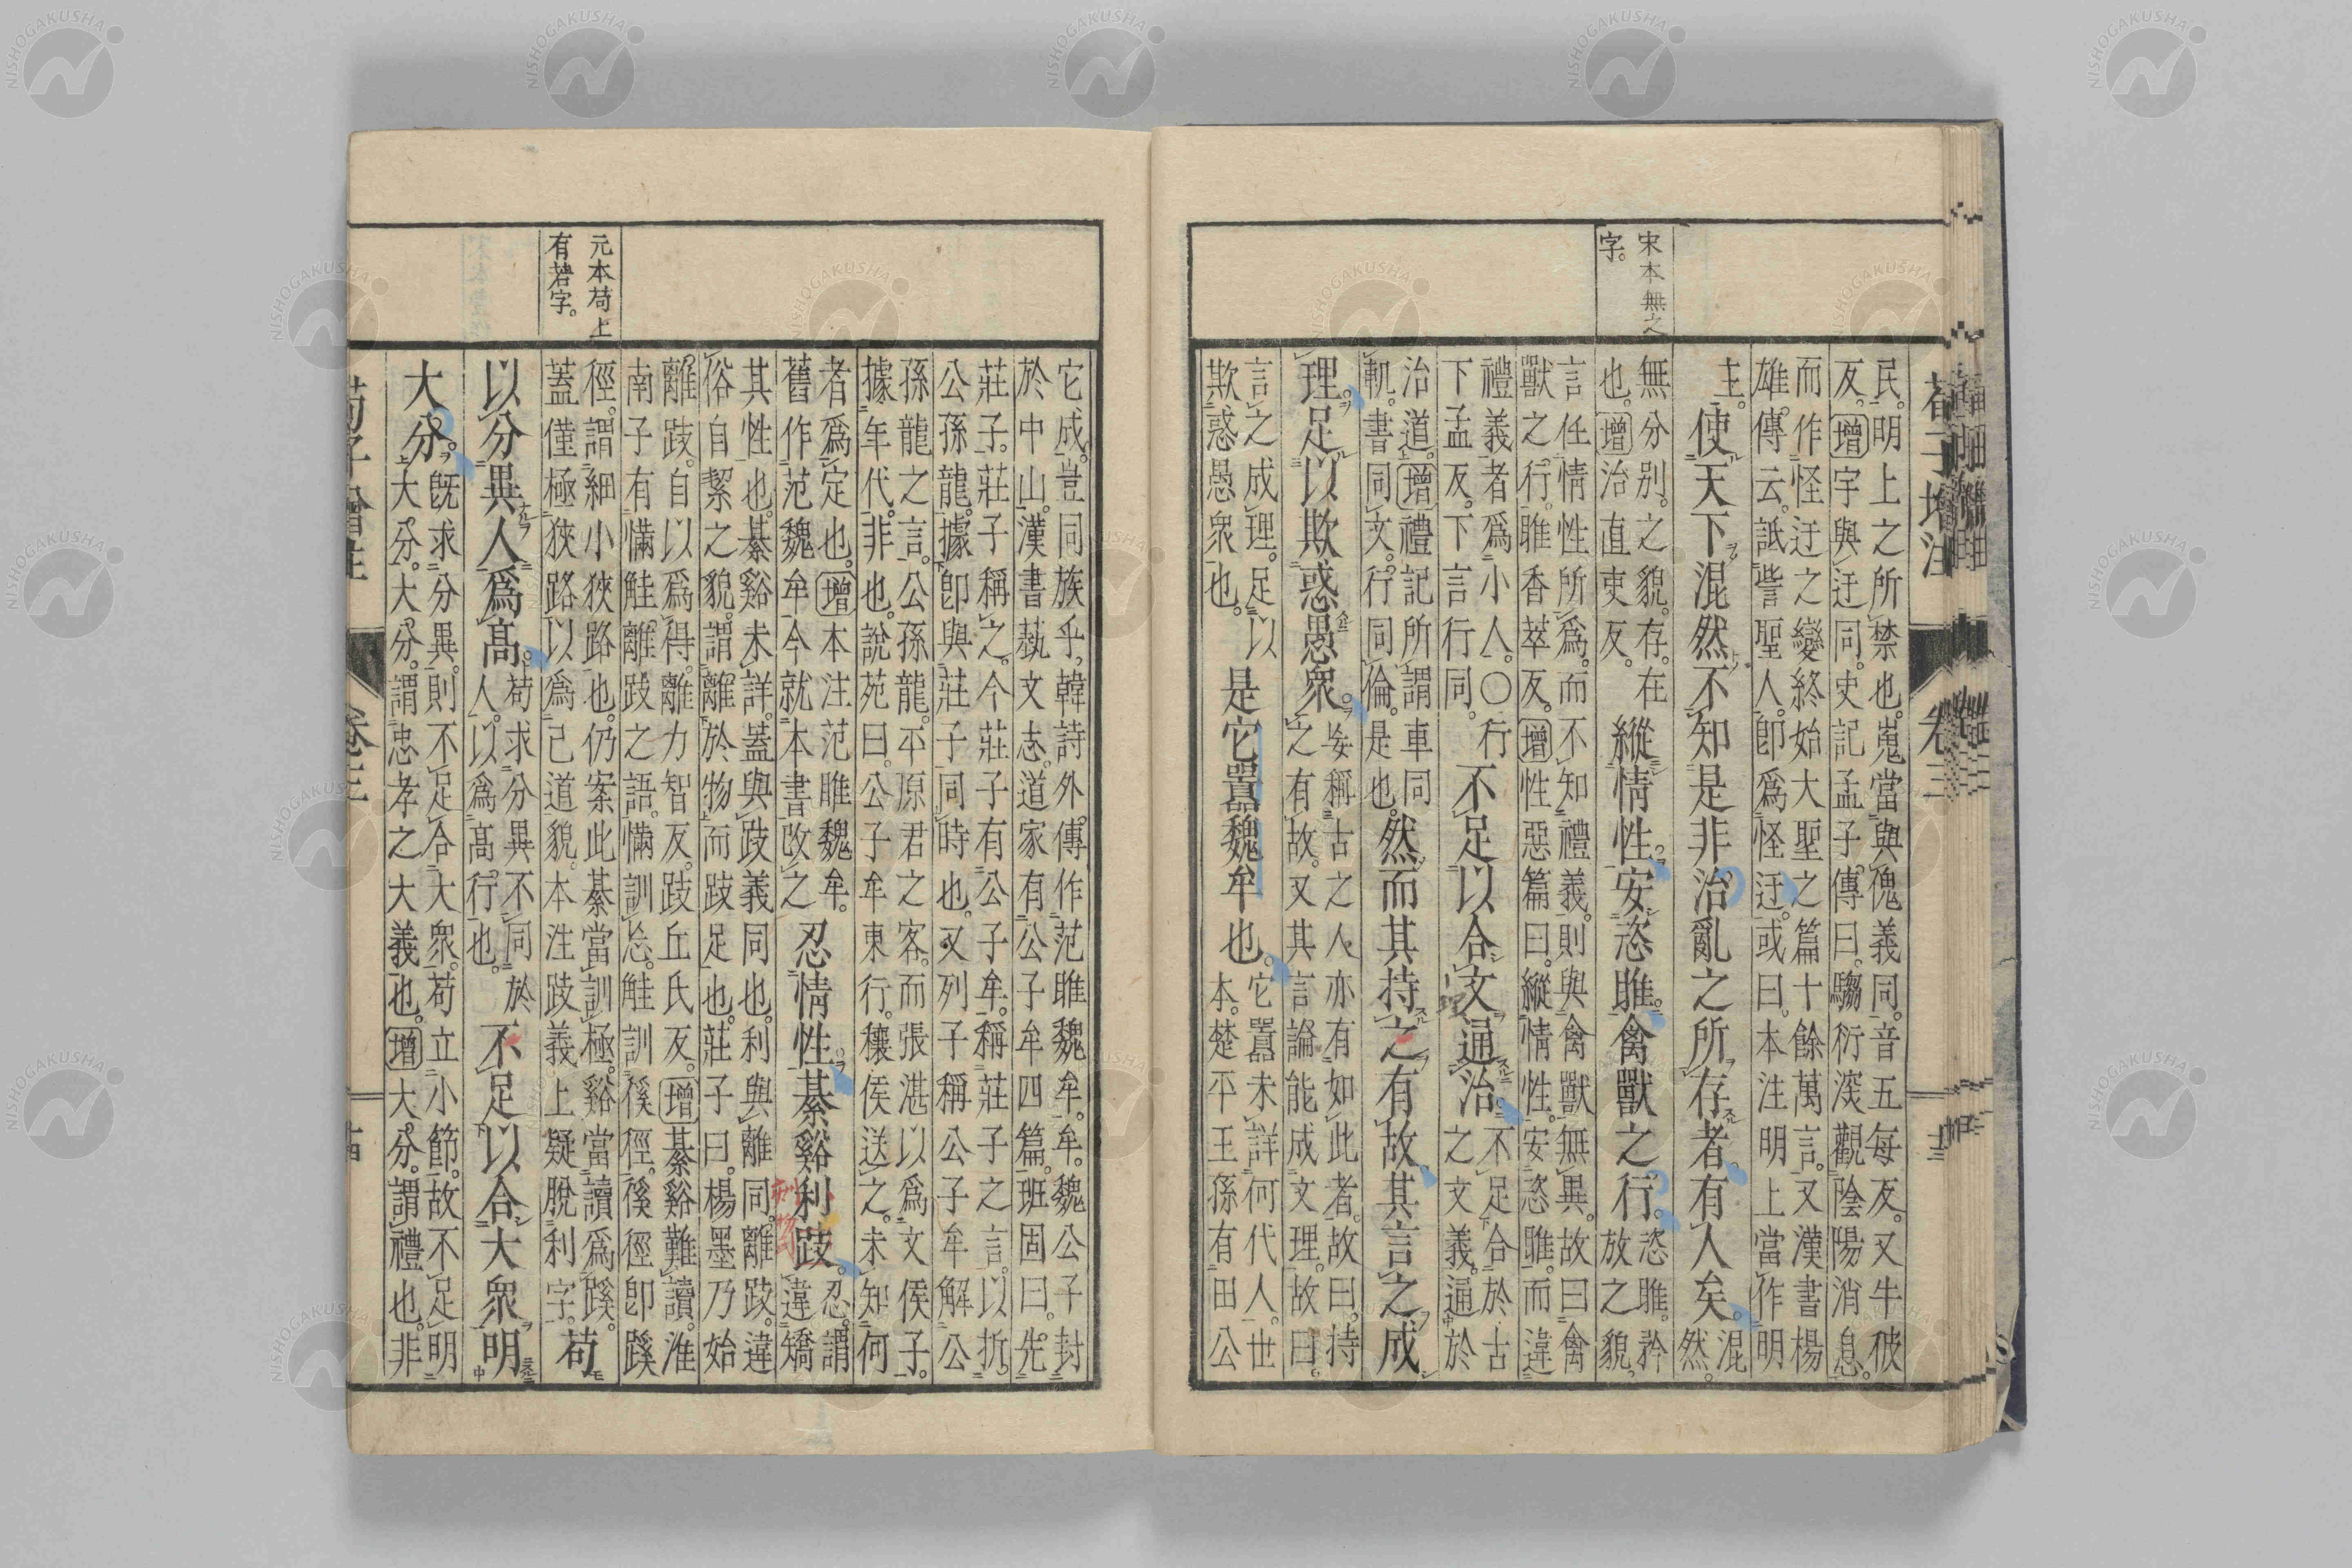 宋本無之
字。
民。明上之所禁也。嵬當與傀義同。音五每反。又牛彼
反。增宇與迂同。史記孟子傳曰。騶衍深觀陰陽消息。
而作怪迂之變終始大聖之篇十餘萬言。又漢書楊
雄傳云。詆訾聖人。卽爲怪迂。或曰。本注明上當作明
主。使天下混然不知是非治亂之所存者有人矣。混
然。
無分別之貌。存。在
也。增治直吏反。
縱情性。安恣睢。禽獸之行。
恣睢。矜
放之貌。
言任情性所爲。而不知禮義。則與禽獸無異。故曰禽
獸之行。睢香萃反。增性惡篇曰。縱情性。安恣睢。而違
禮義者爲小人。〇行
下孟反。下言行同。
不足以合文通治。
不足合於古
之文義。通於
治道。增禮記所謂車同
軌。書同文。行同倫。是也。
然而其持之有故。其言之成
理。足以欺惑愚衆。
妄稱古之人亦有如此者。故曰。持
之有故。又其言論能成文理。故曰。
言之成理。足以
欺惑愚衆也。
是它囂魏牟也。
它囂未詳何代人。世
本。楚平王孫有田公
元本苟上
有若字。
它成。豈同族乎。韓詩外傳作范睢魏牟。牟。魏公子封
於中山。漢書蓺文志。道家有公子牟四篇。班固曰。先
莊子。莊子稱之。今莊子有公子牟。稱莊子之言。以折
公孫龍。據卽與莊子同時也。又列子稱公子牟解公
孫龍之言。公孫龍。平原君之客。而張湛以爲文侯子。
據年代。非也。說苑曰。公子牟東行。穰侯送之。未知何
者爲定也。增本注范睢魏牟。
舊作范魏牟。今就本書改之
忍情性。綦谿利跂。
忍。謂
違矯
其性也。綦谿未詳。蓋與跂義同也。利與離同。離跂。違
俗自絜之貌。謂離於物而跂足也。莊子曰。楊墨乃始
離跂。自以爲得。離力智反。跂丘氏反。增綦谿難讀。淮
南子有慲觟離跂之語。慲訓忘。觟訓徯徑。徯徑卽蹊
徑。謂細小狹路也。仍案此綦當訓極。谿當讀爲蹊。
蓋僅極狹路以爲己道貌。本注跂義上疑脫利字。
苟
以分異人爲高。
苟求分異。不同於
人。以爲高行也。
不足以合大衆明
大分。
旣求分異。則不足合大衆。苟立小節。故不足明
大分。大分。謂忠孝之大義也。增大分。謂禮也。非